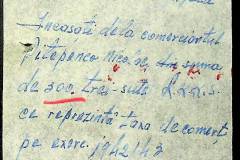 Incasați de la comerciantul
Pitepenco Nicolae suma
de 300, trei-sute R.K.M.S.
ce reprezintă taxa de comerț
pe exerc. 1942/43